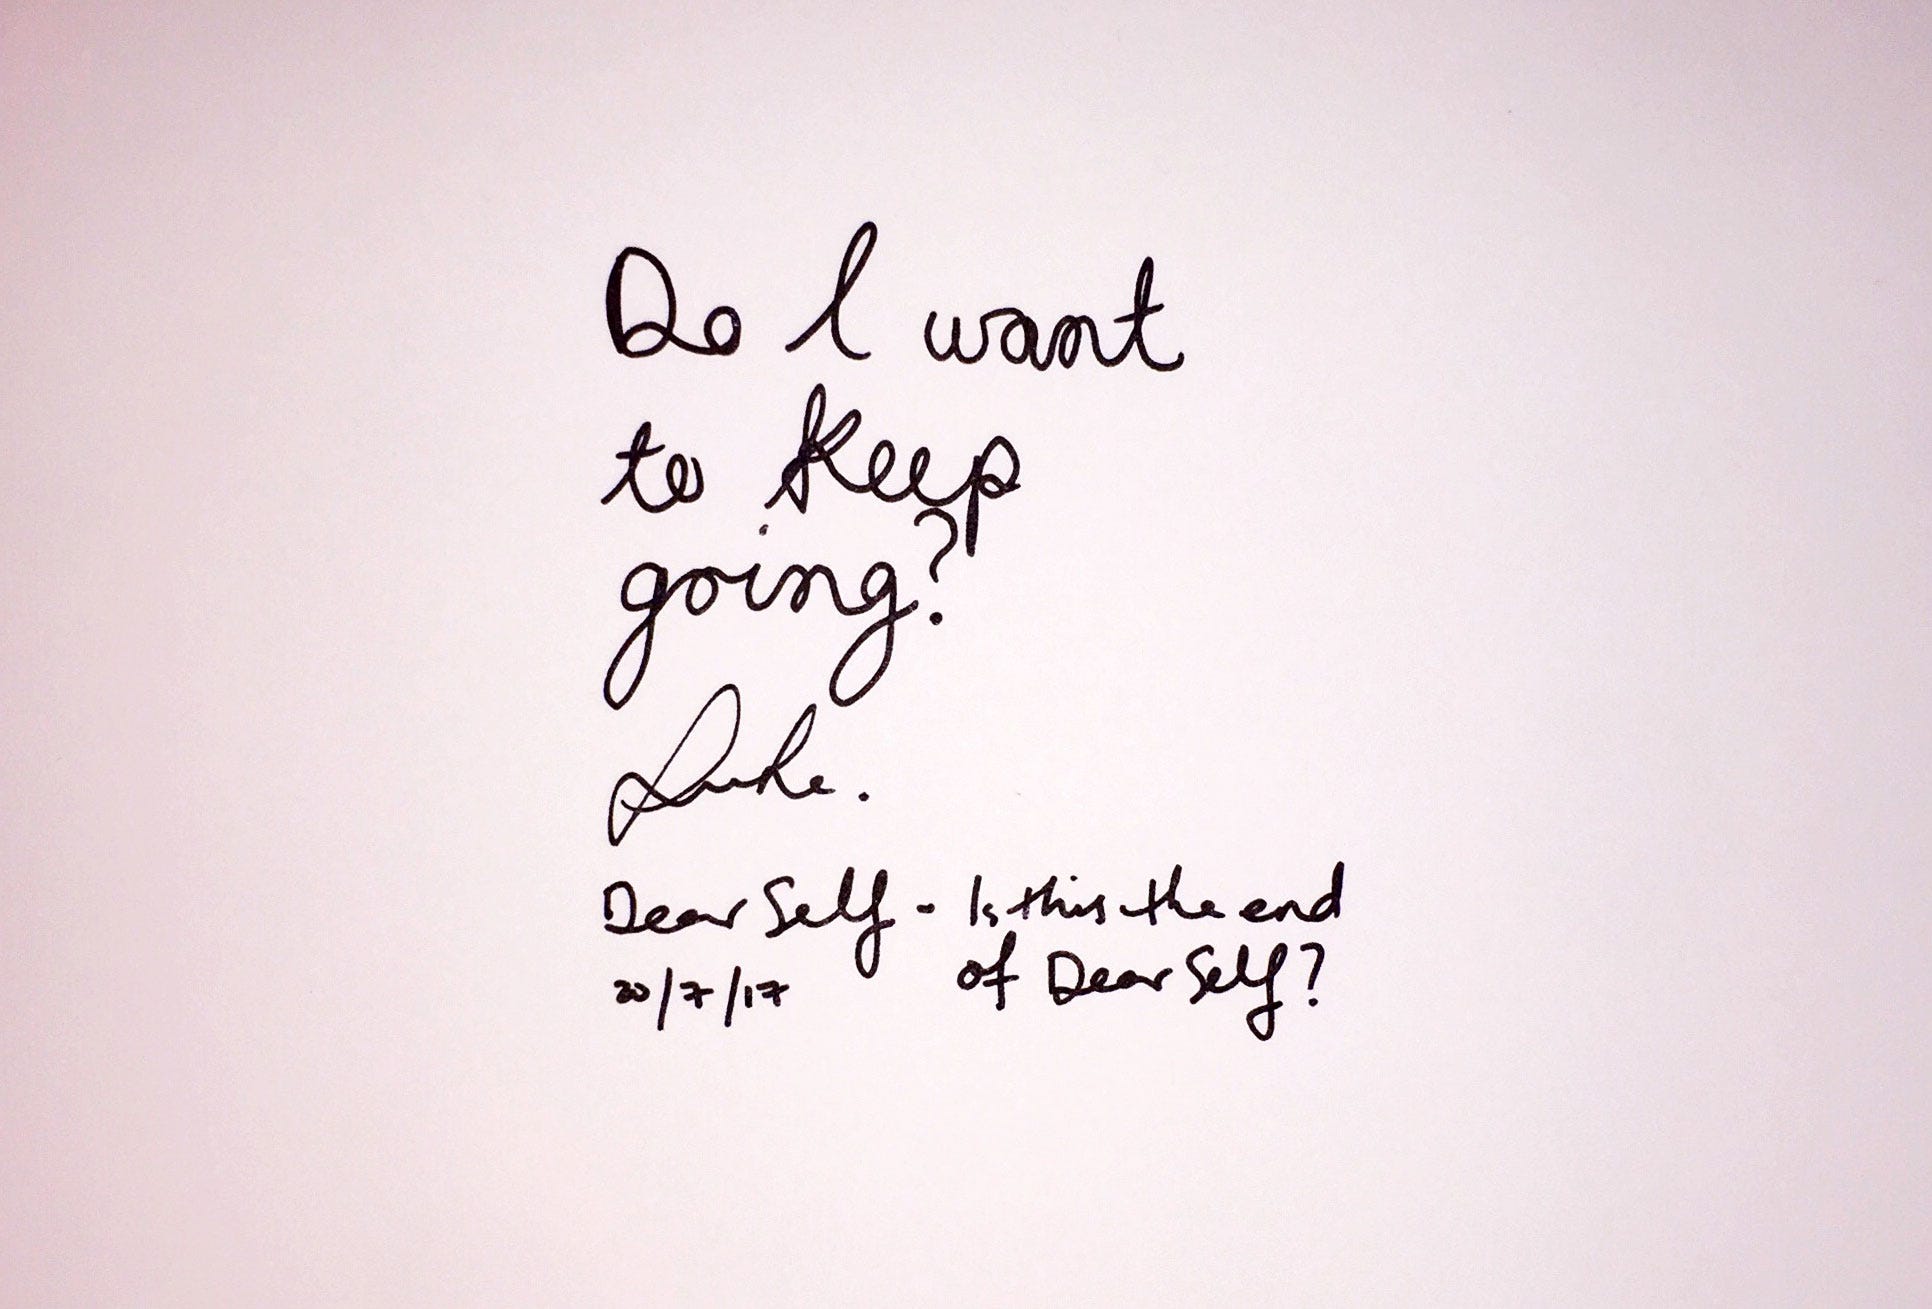 Do I want
to keep
going?
Luke.
Dear Self - Is this the end
of Dear Self?
20/7/17